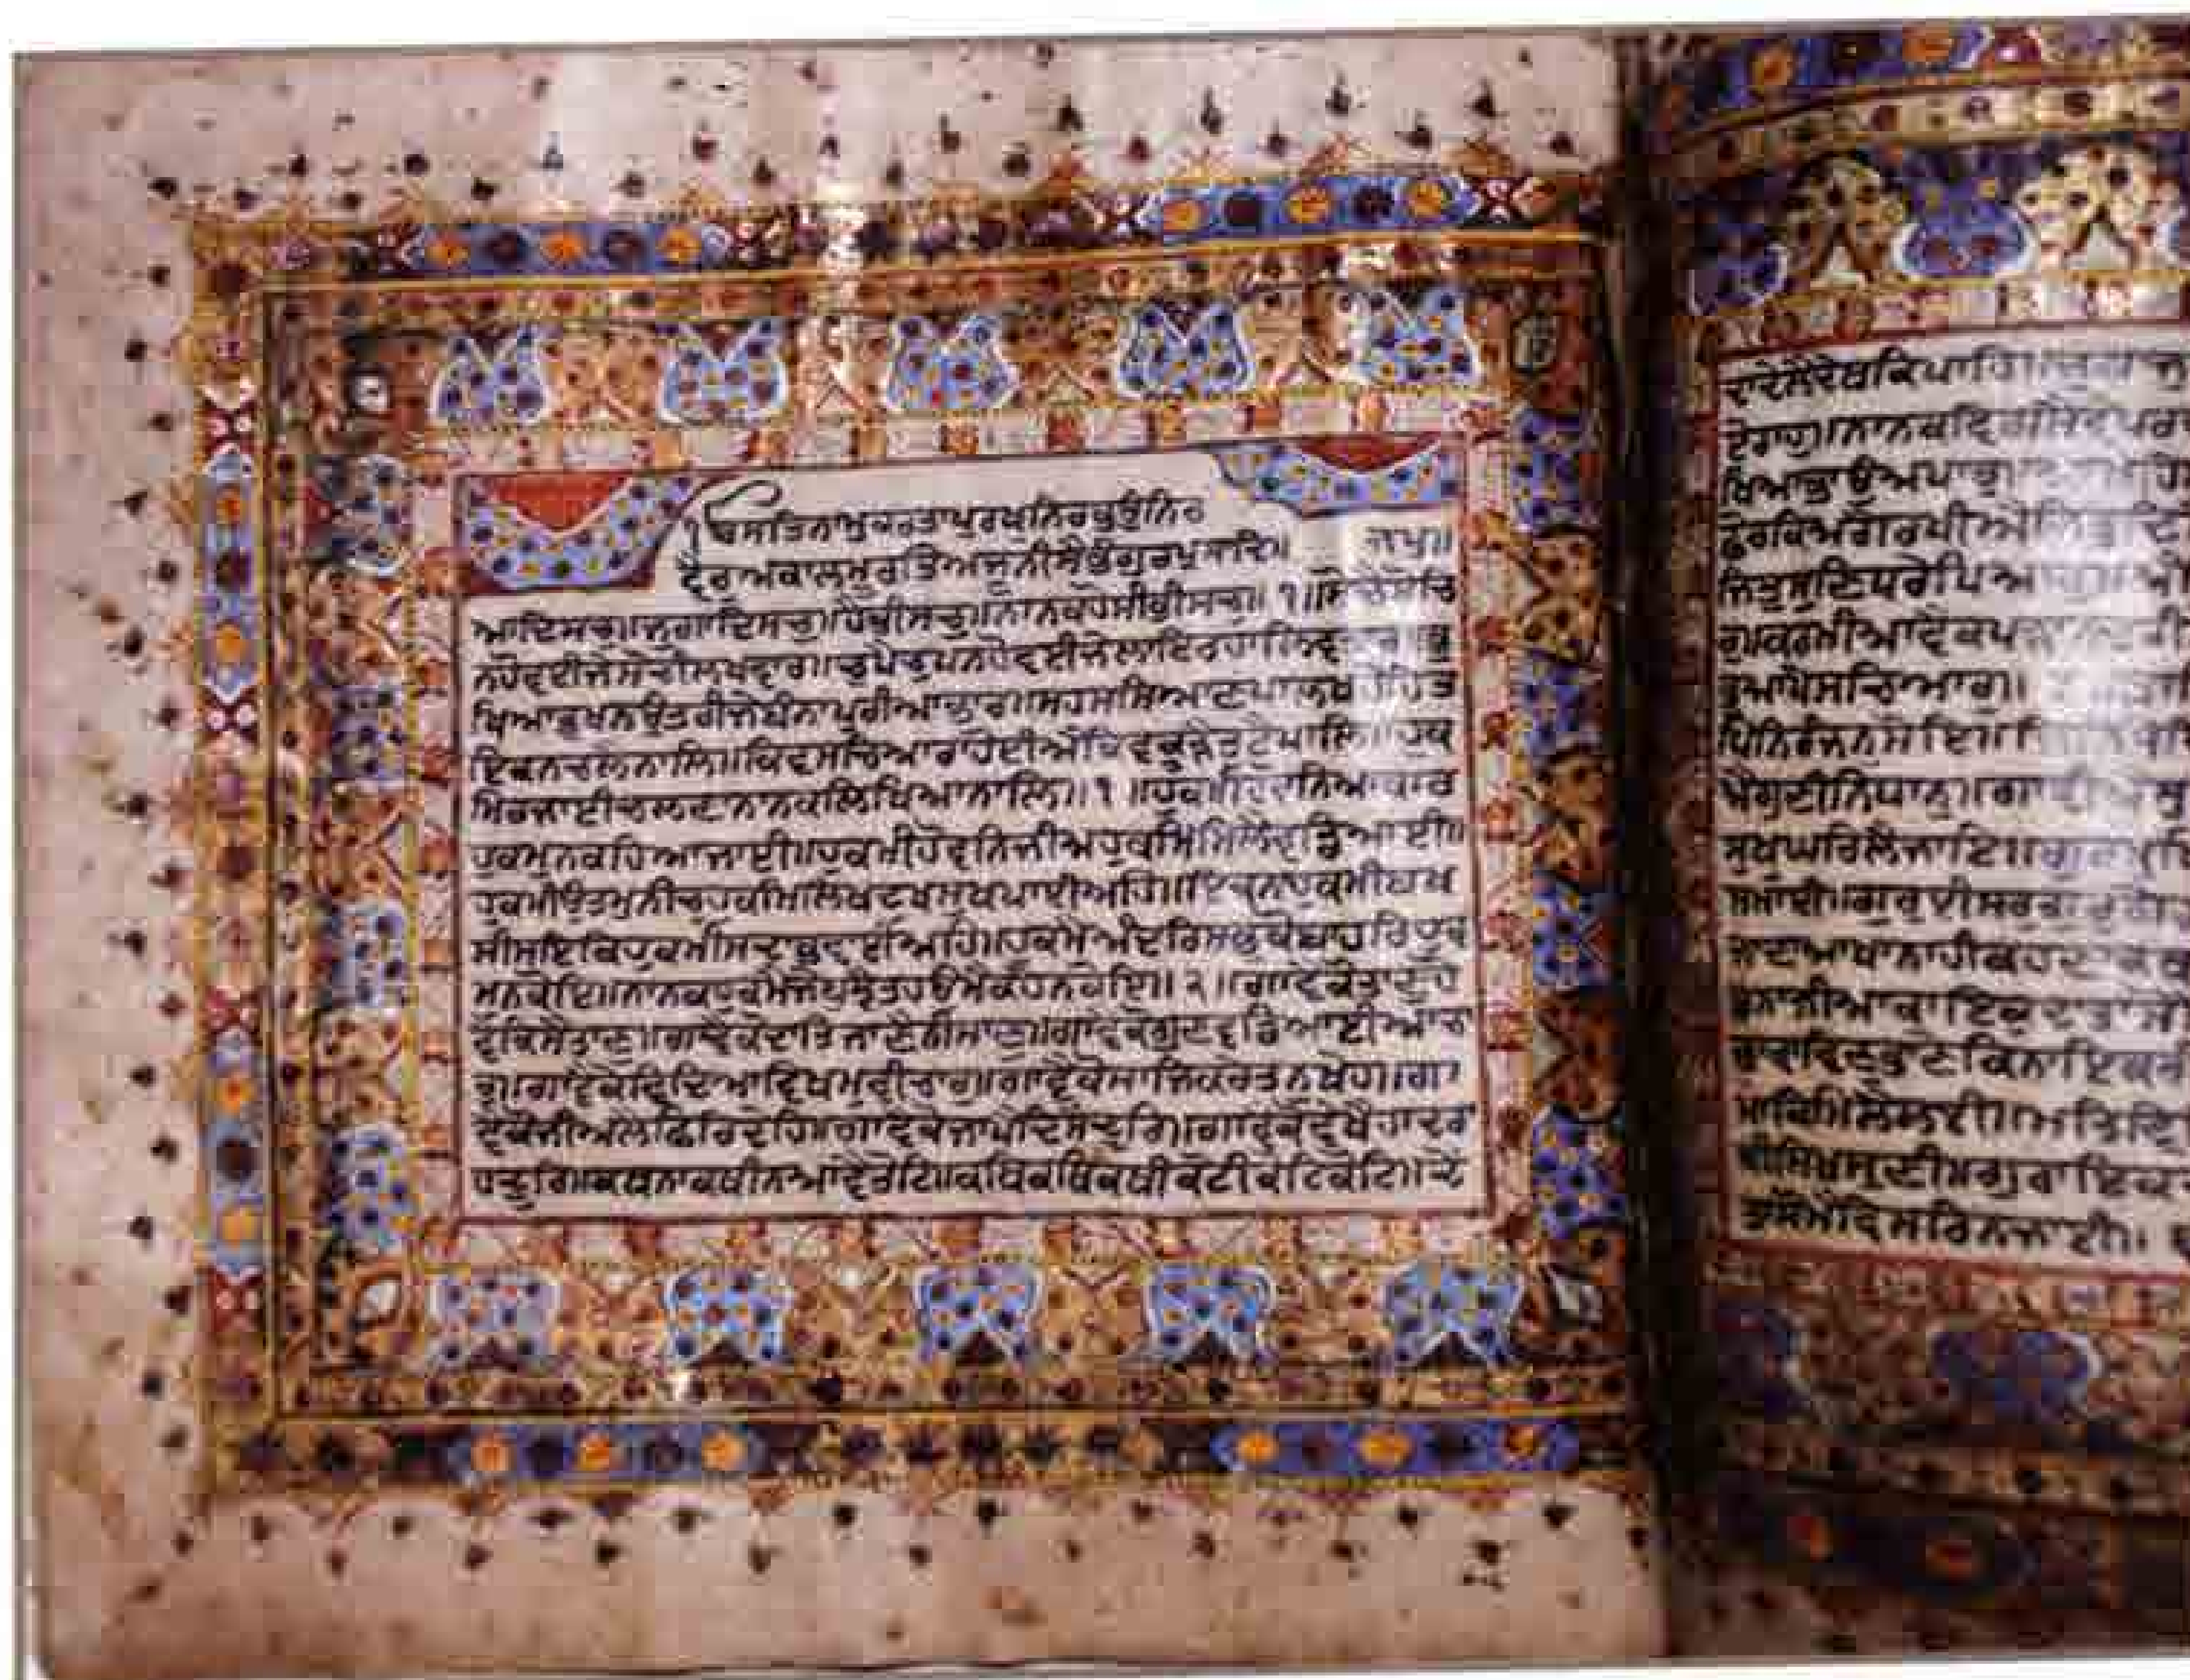 ੴਸਤਿਨਾਮੁਕਰਤਾਪੁਰਖੁਨਿਰਭਉਨਿਰ
ਵੈਰੁਅਕਾਲਮੂਰਤਿਅਜੂਨੀਸੈਭੰਗੁਰਪ੍ਰਸਾਦਿ॥ ਜਪੁ॥
ਆਦਿਸਚੁ॥ਜੁਗਾਦਿਸਚੁ॥ਹੈਭੀਸਚੁ॥ਨਾਨਕਹੋਸੀਭੀਸਚੁ॥੧॥ਸੋਚੈਸੋਚਿ
ਨਹੋਵਈਜੇਸੋਚੀਲਖਵਾਰ॥ਚੁਪੈਚੁਪਨਹੋਵਈਜੇਲਾਇਰਹਾਲਿਵਤਾਰ॥ਭੁ
ਖਿਆਭੁਖਨਉਤਰੀਜੇਬੰਨਾਪੁਰੀਆਭਾਰ॥ਸਹਸਸਿਆਣਪਾਲਖਹੋਹਿਤ
ਇਕਨਚਲੈਨਾਲਿ॥ਕਿਵਸਚਿਆਰਾਹੋਈਐਕਿਵਕੂੜੈਤੁਟੈਪਾਲਿ॥ਹੁਕ
ਮਿਰਜਾਈਚਲਣਾਨਾਨਕਲਿਖਿਆਨਾਲਿ॥੧॥ਹੁਕਮੀਹੋਵਨਿਆਕਾਰ
ਹੁਕਮੁਨਕਹਿਆਜਾਈ॥ਹੁਕਮੀਹੋਵਨਿਜੀਅਹੁਕਮਿਮਿਲੈਵਡਿਆਈ॥
ਹੁਕਮੀਉਤਮੁਨੀਚੁਹੁਕਮਿਲਿਖਦੁਖਸੁਖਪਾਈਅਹਿ॥ਇਕਨਾਹੁਕਮੀਬਖ
ਸੀਸਇਕਿਹੁਕਮੀਸਦਾਭਵਾਈਅਹਿ॥ਹੁਕਮੈਅੰਦਰਿਸਭੁਕੋਬਾਹਰਿਹੁਕ
ਮਨਕੋਇ॥ਨਾਨਕਹੁਕਮੈਜੇਬੁਝੈਤਹਉਮੈਕਹੈਨਕੋਇ॥੨॥ਗਾਵੈਕੋਤਾਣੁਹੋ
ਵੈਕਿਸੈਤਾਣੁ॥ਗਾਵੈਕੋਦਾਤਿਜਾਣੈਨੀਸਾਣੁ॥ਗਾਵੈਕੋਗੁਣਵਡਿਆਈਆਚਾ
ਰੁ॥ਗਾਵੈਕੋਵਿਦਿਆਵਿਖਮੁਵੀਚਾਰੁ॥ਗਾਵੈਕੋਸਾਜਿਕਰੇਤਨੁਖੇਹ॥ਗਾ
ਵੈਕੋਜੀਅਲੈਫਿਰਿਦੇਹਿ॥ਗਾਵੈਕੋਜਾਪੈਦਿਸੈਦੂਰਿ॥ਗਾਵੈਕੋਵੇਖੈਹਾਦਰਾ
ਹਦੂਰਿ॥ਕਥਨਾਕਥੀਨਆਵੈਤੋਟਿ॥ਕਥਿਕਥਿਕਥੀਕੋਟੀਕੋਟਿਕੋਟਿ॥ਦੇ
ਦਾਦੇਲੈਦੇਥਕਿਪਾਹਿ॥ਜੁਗਾ
ਵੇਪਰ
ਖਿਆਭਾਉਅਪਾਰੁ॥
ਫੇਰਕਿਅਗੈਰਖੀਐਜਿਤੁਦਿ
ਜਿਤੁਸੁਣਿਧਰੇਪਿਆਰੁ॥ਅੰ
ਰੁ॥ਕਰਮੀਆਵੈਕਪ
ਭੁਆਪੇਸਚਿਆਰੁ॥
ਪਿਨਿਰੰਜਨੁਸੋਇ॥
ਐਗੁਣੀਨਿਧਾਨੁ॥ਗਾਵੀਐਸੁ
ਸੁਖੁਘਰਿਲੈਜਾਇ॥
ਸਮਾਈ॥ਗੁਰੁਈਸਰੁਗੁਰੁ
ਜਾਣਾਆਖਾਨਾਹੀਕਹਣਾਕਥ
ਭਨਾਜੀਆਕਾਇਕੁਦਾਤਾਸੋ
ਭਾਵਾਵਿਣੁਭਾਣੇਕਿਨਾਇਕਰੀ
ਮਾਕਿਮਿਲੈਲਈ॥ਮਤਿਵਿ
ਕੀਸਿਖਸੁਣੀ॥ਗੁਰਾਇਕ
ਤਾਸੋਮੈਵਿਸਰਿਨਜਾਈ॥੬